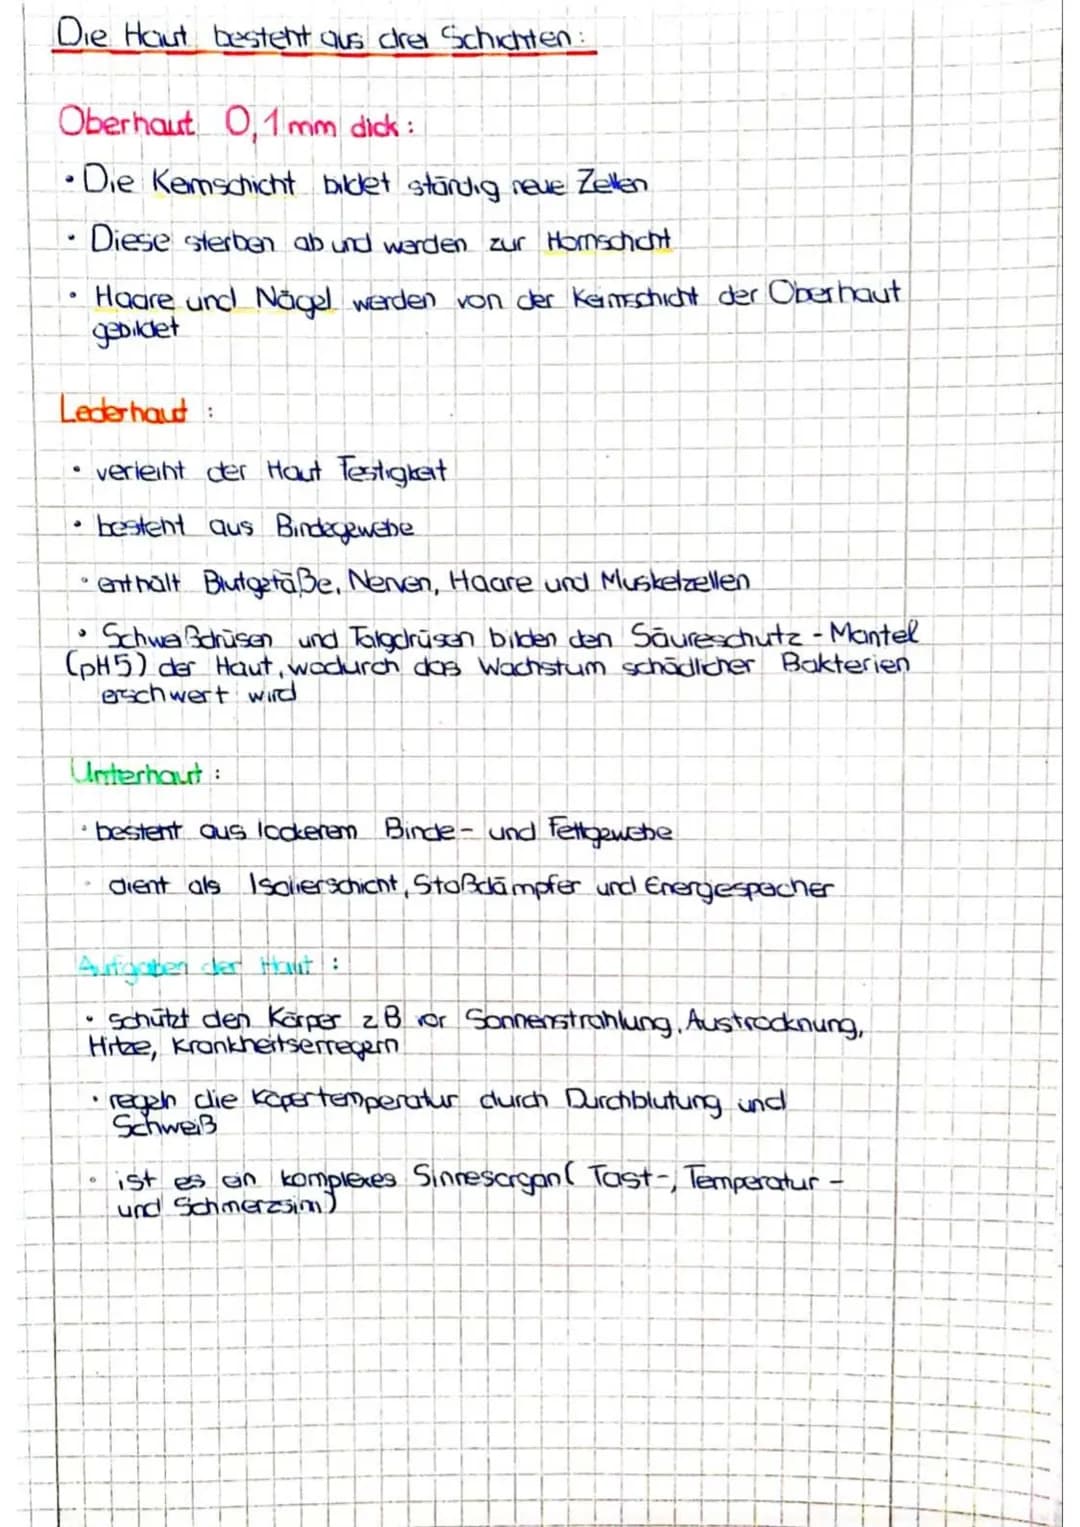 Die Haut besteht aus drei Schichten:
Oberhaut 0,1 mm dick:
• Die Keimschicht bildet ständig neue Zellen
• Diese sterben ab und werden zur Hornschicht
• Haare und Nägel werden von der Keimschicht der Oberhaut
gebildet
Lederhaut :
• verleiht der Haut Festigkeit
• besteht aus Bindegewebe
• enthält Blutgefäße, Nerven, Haare und Muskelzellen
• Schweißdrüsen und Talgdrüsen bilden den Säureschutz - Mantel
(pH5) der Haut, wodurch das Wachstum schädlicher Bakterien
erschwert wird
Unterhaut :
• besteht aus lockerem Binde- und Fettgewebe
• dient als Isolierschicht, Stoßdämpfer und Energiespeicher
Aufgaben der Haut :
• schützt den Körper z B vor Sonnenstrahlung, Austrocknung,
Hitze, Krankheitserregern
• regeln die Köpertemperatur durch Durchblutung und
Schweiß
• ist es ein komplexes Sinnesorgan ( Tast-, Temperatur -
und Schmerzsinn)